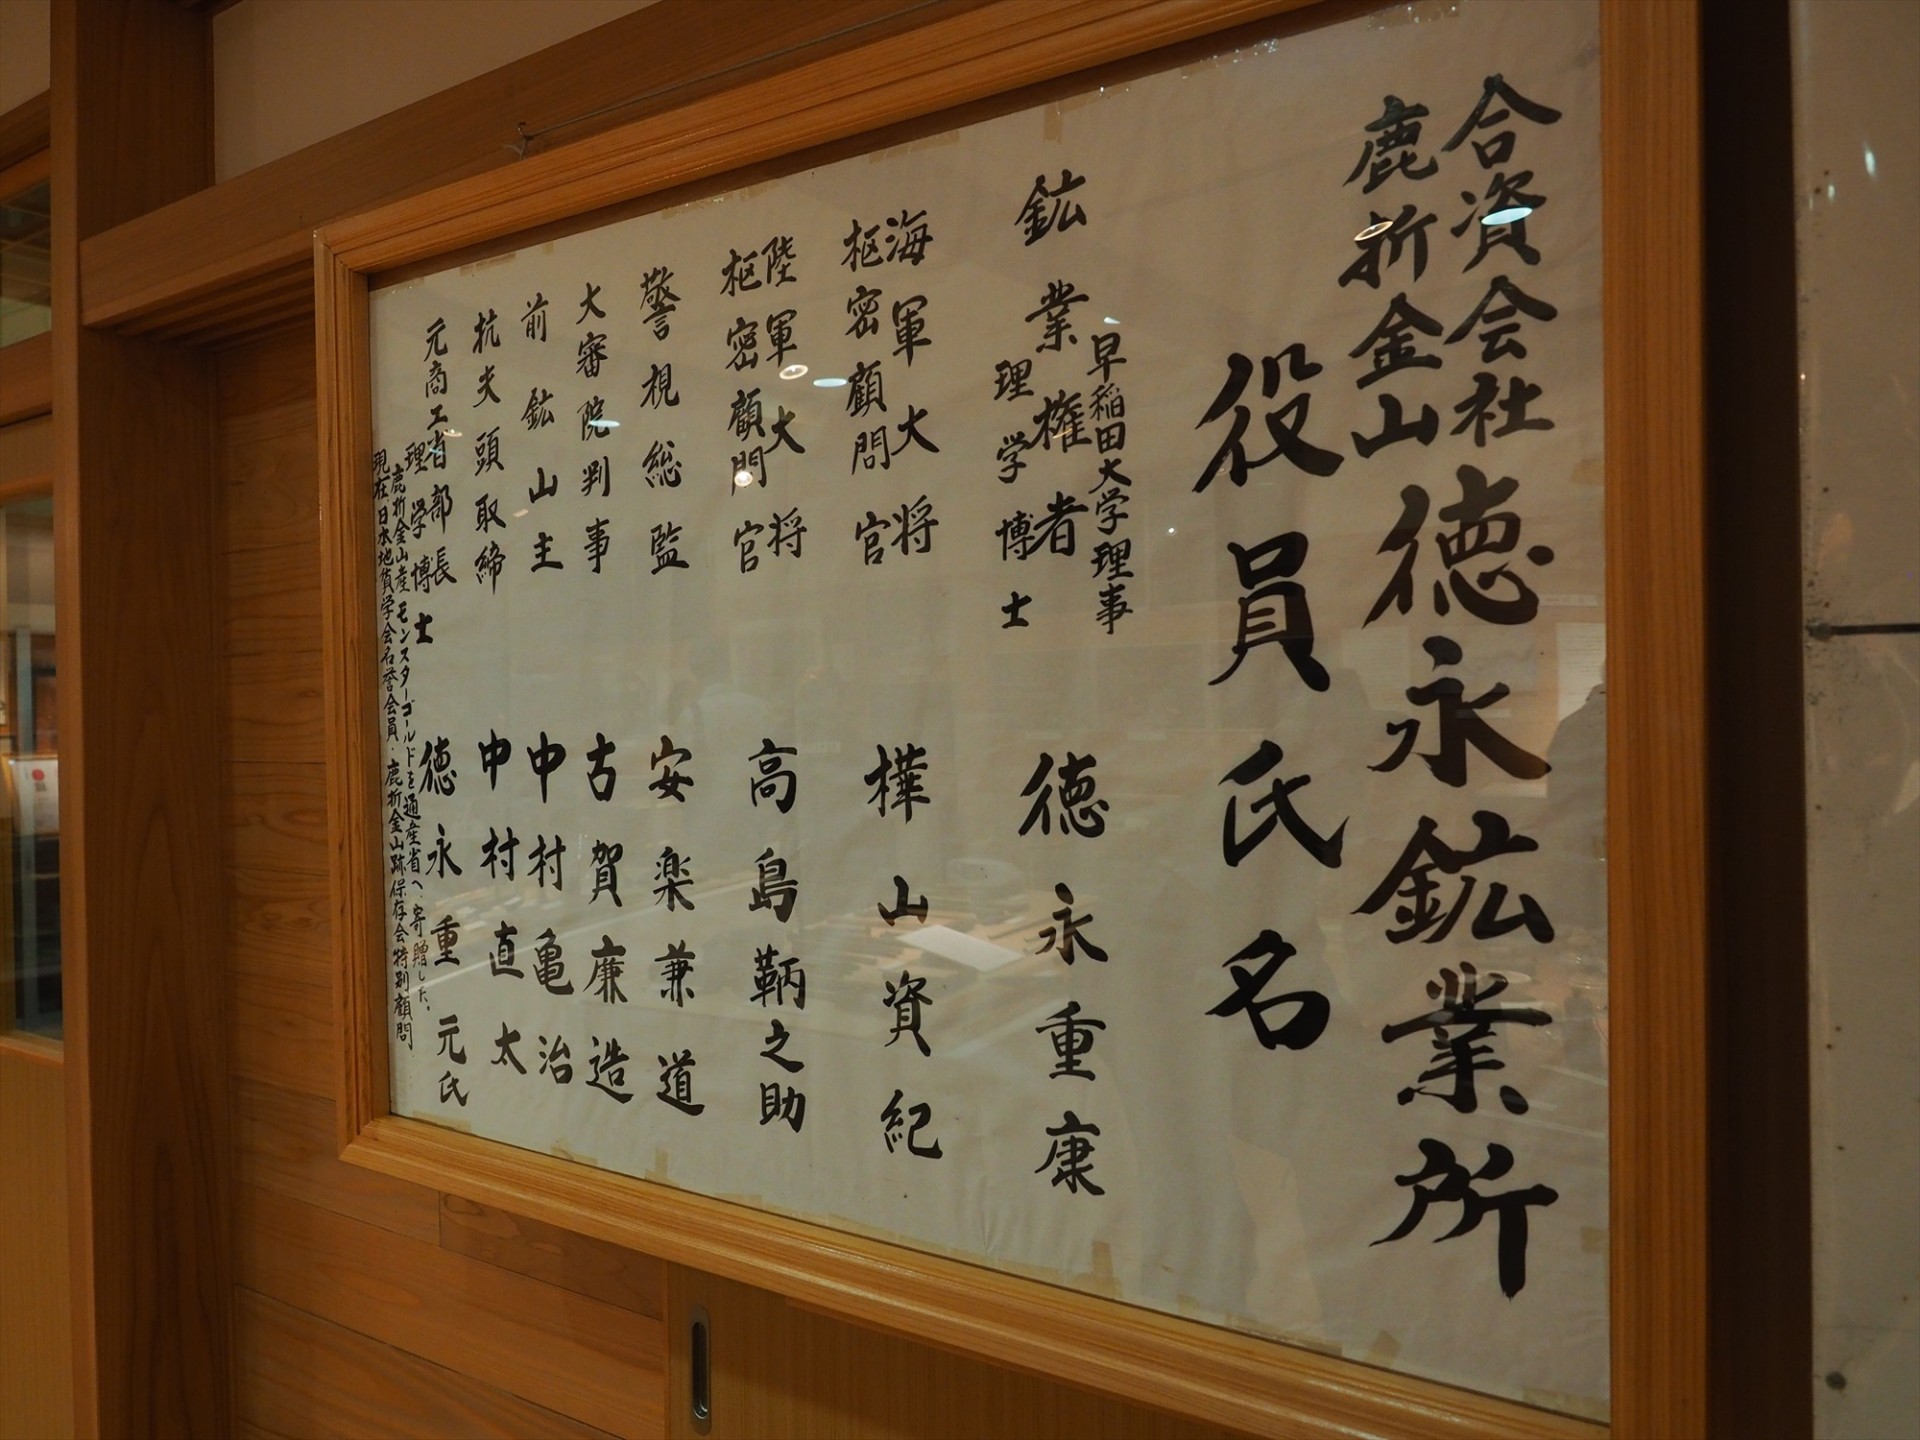 合資会社
鹿折金山
徳永鉱業所
役員氏名
早稲田大学理事
鉱業権者
理学博士
徳永重康
海軍大将
枢密顧問官
樺山資紀
陸軍大将
枢密顧問官
高島鞆之助
警視総監
安楽兼道
大審院判事
古賀廉造
前鉱山主
中村亀治
抗夫頭取締
中村直太
元商工省部長
理学博士
徳永重元氏
鹿折金山産モンスターゴールドを通産省へ、寄贈した、
現在、日本地質学会名誉会員・鹿折金山跡保存会特別顧問